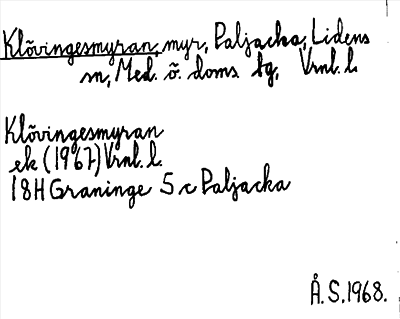 Klövingesmyran, myr, Paljacka, Lidens
sn, Med. ö. doms bg, Vrnl. l.
Klövingesmyran
ek (1967) Vrnl. l.
18H Graninge 5 c Paljacka
Å.S. 1968.